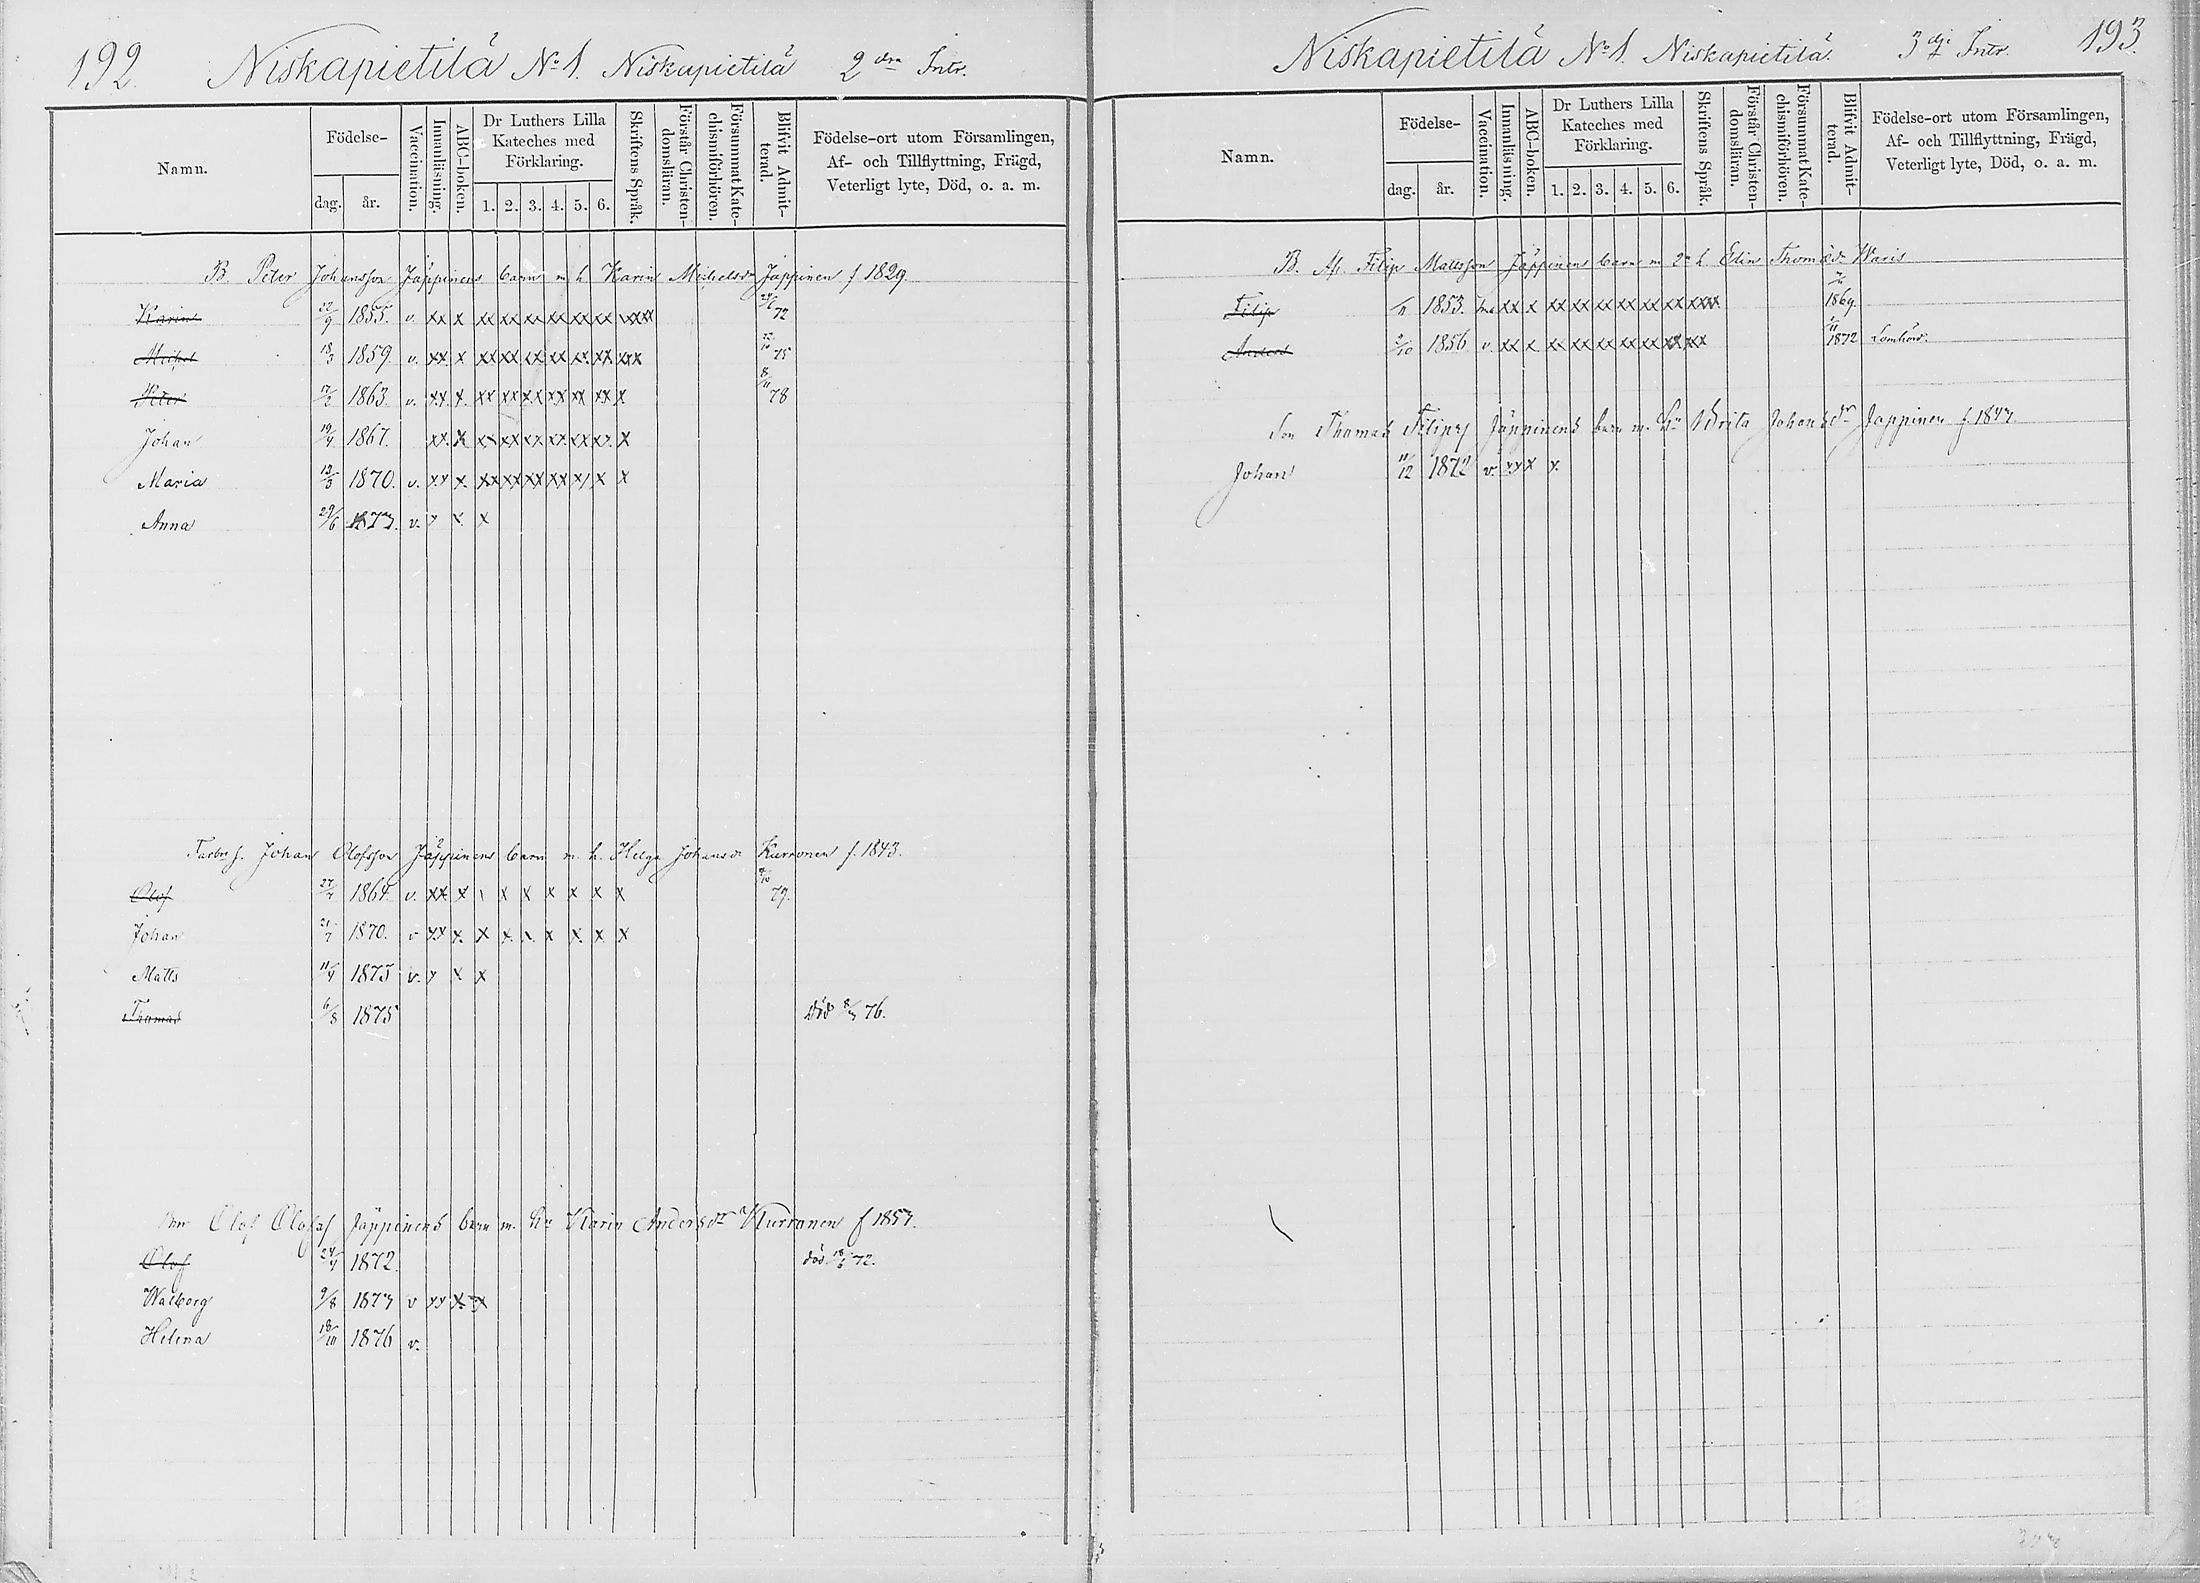 192. Niskapietilä No 1. Niskapietilä 2dra Intr.
Namn. Födelse- dag. år. Vaccination. Innanläsning. ABC-boken. Dr Luthers Lilla Kateches med Förklaring. 1. 2. 3. 4. 5. 6. Skriftens Språk. Förstår Christendomsläran. Försummat Katechismiförhören. Blifvit Admitterad. Födelse-ort utom Församlingen, Af- och Tillflyttning, Frägd, Veterligt lyte, Död, o. a. m.
B. Peter Johansson Jäppinens barn m h Karin Michelsdr Jäppinen f 1829.
Karin 22/9 1855. v. xx x xx xx xx xx xx xx xxx 72
18/3 1859. v. xx x xx xx xx xx xx xx xxx 75
Peter 17/2 1863. v. xx x. xx xx xx xx xx xx x 8/11 78
Johan 19/4 1867. xx x xx xx xx xx xx x
Maria 12/3 1870. v. xx x. xx xx xx xx x x
Anna 29/6 1873. v. x x x
Johan Olofsson Jäppinens barn m. h. Helga Johansdr Kurronen f. 1843.
Olof 27/7 1864 v. xx x x x x x x x 79.
Johan 21/7 1870. v xx x. x x x x x x x
Matts 11/4 1873 v. x x x
Thomas 6/8 1875 död 76.
Olof Olofss Jäppinens barn m. hu Karin Andersdr Kurronen f 1851.
Olof 24/4 1872. död 18/6 72.
Walborg 9/8 1873 v xx x x
Helena 18/10 1876 v.
Niskapietilä No 1. Niskapietilä. 3dje Intr. 193.
Namn. Födelse- dag. år. Vaccination. Innanläsning. ABC-boken. Dr Luthers Lilla Kateches med Förklaring. 1. 2. 3. 4. 5. 6. Skriftens Språk. Förstår Christendomsläran. Försummat Katechismiförhören. Blifvit Admitterad. Födelse-ort utom Församlingen, Af- och Tillflyttning, Frägd, Veterligt lyte, Död, o. a. m.
B. Filip Mattsson Jäppinens barn m 2a h Elin Thomædr Waris
Filip 1853. xx x xx xx xx xx xx xx xxx 1869.
Anders 2/10 1856 v. xx x x xx xx xx xx xx xx 1872
Son Thomas Filipss Jäppinens barn m. hu Brita Johansdr Jäppinen f. 1847.
Johan 11/12 1872 v. xx x x.